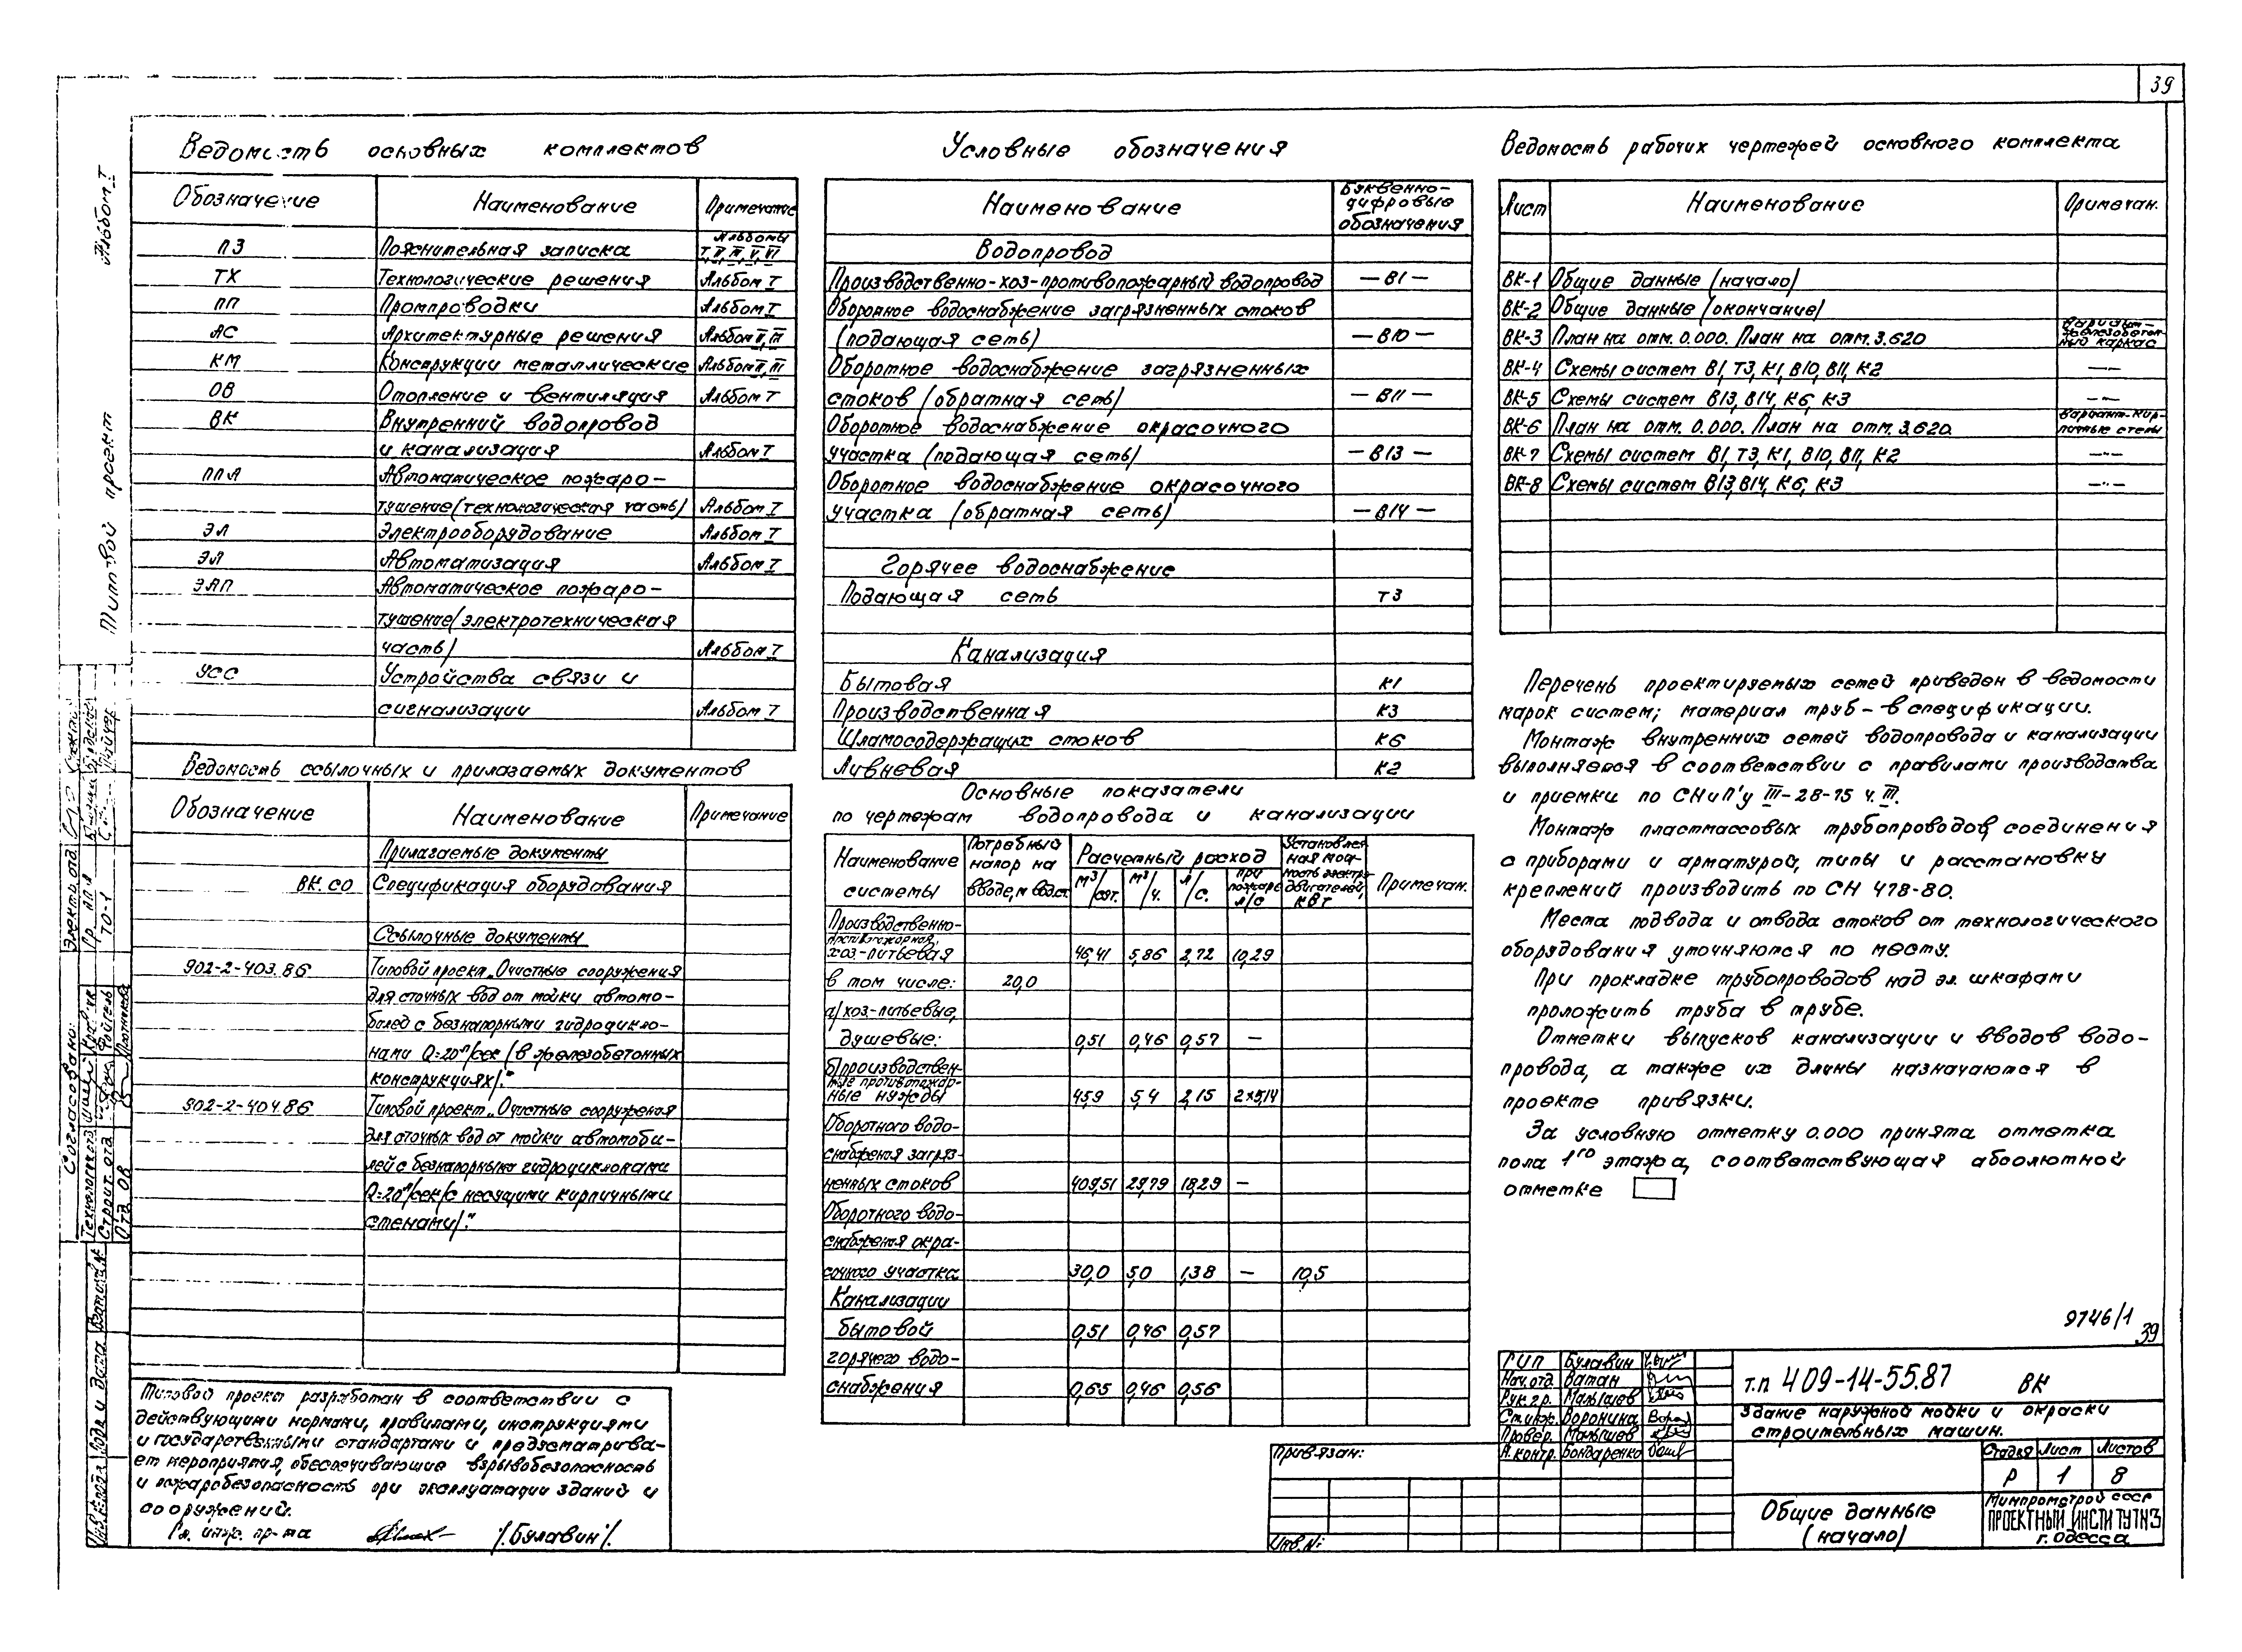 39
Альбом I
Типовой проект
Ведомость основных комплектов
Обозначение Наименование Примечание
ПЗ Пояснительная записка Альбомы I, II, III, V, VI
ТХ Технологические решения Альбом I
ПП Промпроводки Альбом I
АС Архитектурные решения Альбом II, III
КМ Конструкции металлические Альбом II, III
ОВ Отопление и вентиляция Альбом I
ВК Внутренний водопровод
и канализация Альбом I
ППА Автоматическое пожаро-
тушение (технологическая часть) Альбом I
ЭЛ Электрооборудование Альбом I
ЭА Автоматизация Альбом I
ЭАП Автоматическое пожаро-
тушение (электротехническая
часть) Альбом I
УСС Устройства связи и
сигнализации Альбом I
Ведомость ссылочных и прилагаемых документов
Обозначение Наименование Примечание
Прилагаемые документы
ВК. СО Спецификация оборудования
Ссылочные документы
902-2-403.86 Типовой проект „Очистные сооружения
для сточных вод от мойки автомо-
билей с безнапорными гидроцикло-
нами Q=20л/сек (в железобетонных
конструкциях)."
902-2-404.86 Типовой проект „Очистные сооружения
для сточных вод от мойки автомоби-
лей с безнапорными гидроциклонами
Q=20л/сек (с несущими кирпичными
стенами)."
Типовой проект разработан в соответствии с
действующими нормами, правилами, инструкциями
и государственными стандартами и предусматрива-
ет мероприятия, обеспечивающие взрывобезопасность
и пожаробезопасность при эксплуатации зданий и
сооружений.
Гл. инж. пр-та /Булавин/.
Условные обозначения
Наименование Буквенно-
цифровые
обозначения
Водопровод
Производственно-хоз-противопожарный водопровод — В1 —
Оборотное водоснабжение загрязненных стоков
(подающая сеть) — В10 —
Оборотное водоснабжение загрязненных
стоков (обратная сеть) — В11 —
Оборотное водоснабжение окрасочного
участка (подающая сеть) — В13 —
Оборотное водоснабжение окрасочного
участка (обратная сеть) — В14 —
Горячее водоснабжение
Подающая сеть Т3
Канализация
Бытовая К1
Производственная К3
Шламосодержащих стоков К6
Ливневая К2
Основные показатели
по чертежам водопровода и канализации
Наименование
системы
Потребный
напор на
вводе, м вод.ст.
Расчетный расход
м³/сут. м³/ч. л/с. при пожаре л/с
Установлен-
ная мощ-
ность электро-
двигателей,
кВт
Примечан.
Производственно-
противопожарная,
хоз-питьевая 46,41 5,86 2,72 10,29
в том числе: 20,0
а/ хоз-питьевые,
душевые: 0,51 0,46 0,57 —
б/производствен-
ные противопожар-
ные нужды 45,9 5,4 2,15 2×5,14
Оборотного водо-
снабжения загряз-
ненных стоков 409,51 29,79 18,29 —
Оборотного водо-
снабжения окра-
сочного участка 30,0 5,0 1,38 — 10,5
Канализации
бытовой 0,51 0,46 0,57
горячего водо-
снабжения 0,65 0,46 0,56
Ведомость рабочих чертежей основного комплекта
Лист Наименование Примечан.
ВК-1 Общие данные (начало)
ВК-2 Общие данные (окончание)
ВК-3 План на отм. 0.000. План на отм. 3.620 Вариант-
железобетон-
ный каркас
ВК-4 Схемы систем В1, Т3, К1, В10, В11, К2 —"—
ВК-5 Схемы систем В13, В14, К6, К3 —"—
ВК-6 План на отм. 0.000. План на отм. 3.620 Вариант-кир-
пичные стены
ВК-7 Схемы систем В1, Т3, К1, В10, В11, К2 —"—
ВК-8 Схемы систем В13, В14, К6, К3 —"—
Перечень проектируемых сетей приведен в ведомости
марок систем; материал труб – в спецификации.
Монтаж внутренних сетей водопровода и канализации
выполняется в соответствии с правилами производства
и приемки по СНиП'у III-28-75 ч. III.
Монтаж пластмассовых трубопроводов, соединения
с приборами и арматурой, типы и расстановку
креплений производить по СН 478-80.
Места подвода и отвода стоков от технологического
оборудования уточняются по месту.
При прокладке трубопроводов над эл. шкафами
проложить труба в трубе.
Отметки выпусков канализации и вводов водо-
провода, а также их длины назначаются в
проекте привязки.
За условную отметку 0.000 принята отметка
пола 1го этажа, соответствующая абсолютной
отметке
9746/1
39
ГИП Булавин
Нач.отд. Ватан
Рук.гр. Малышев
Ст.инж. Воронина
Провер. Малышев
Н.контр. Бондаренко
т.п 409-14-55.87 ВК
Здание наружной мойки и окраски
строительных машин.
Стадия Лист Листов
Р 1 8
Общие данные
(начало)
Минпромстрой СССР
ПРОЕКТНЫЙ ИНСТИТУТ №3
г. Одесса
Привязан:
Инв.№
Согласовано:
Электр. отд.
ТО-1
Строит. отд
Отд ОВ
Взам.инв.№
Подп. и дата
Инв.№подл.